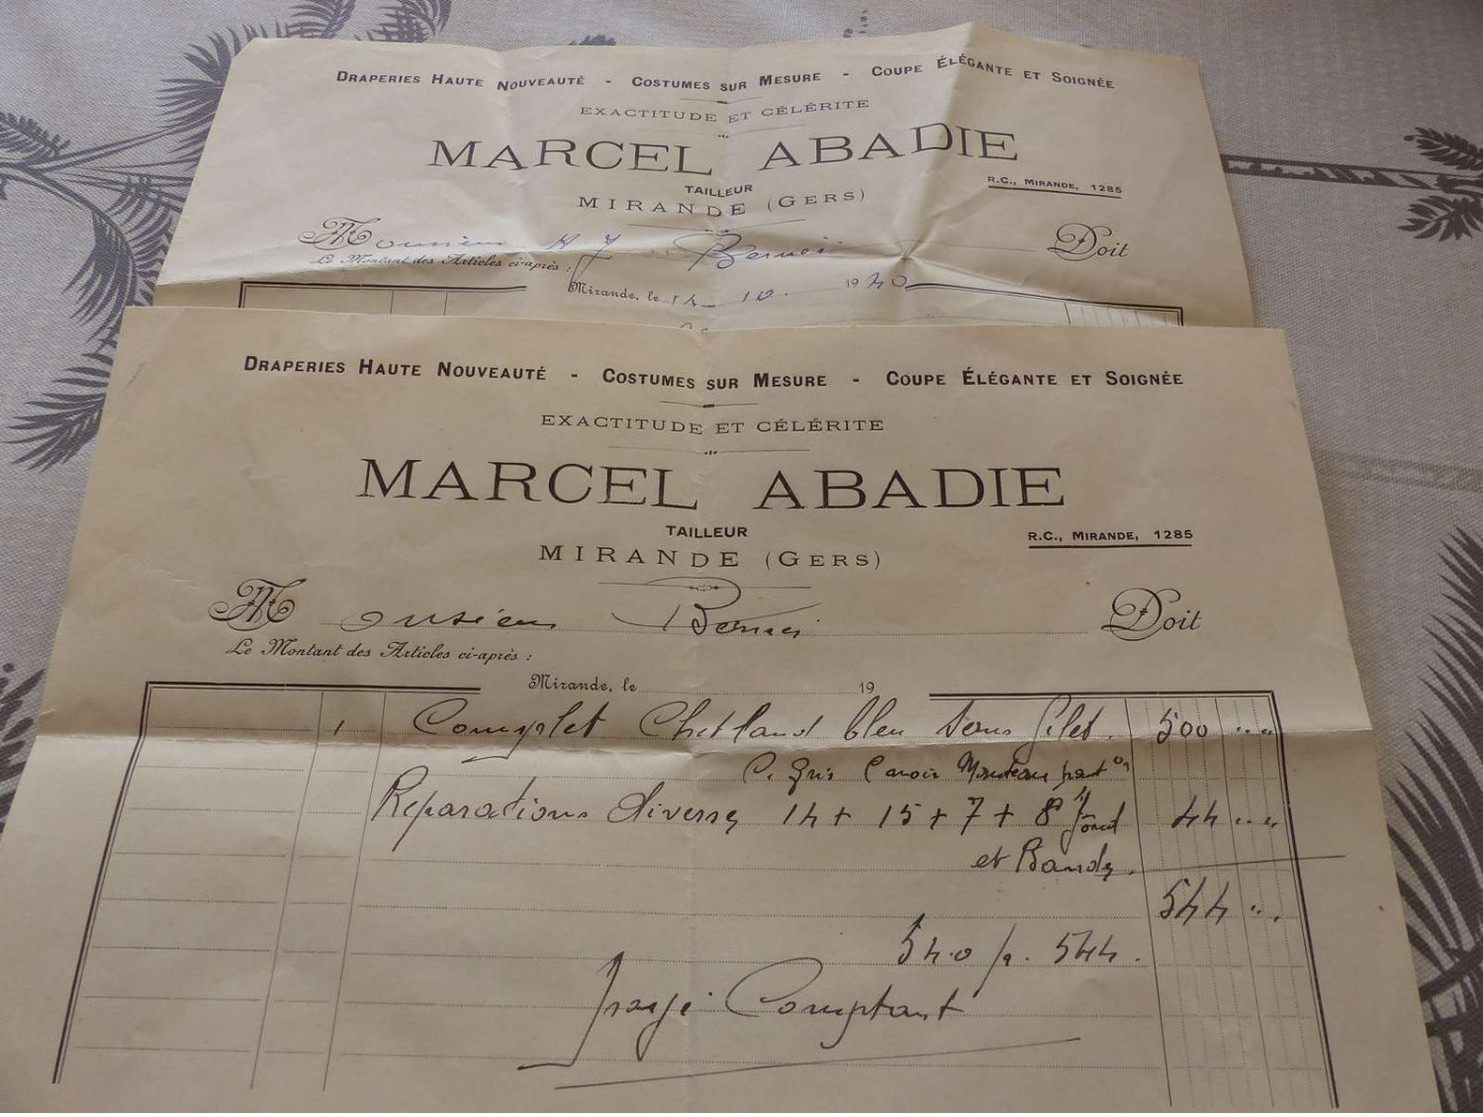 DRAPERIES HAUTE NOUVEAUTÉ - COSTUMES SUR MESURE - COUPE ÉLÉGANTE ET SOIGNÉE
EXACTITUDE ET CÉLÉRITE
MARCEL ABADIE
TAILLEUR
R.C., MIRANDE, 1285
MIRANDE (GERS)
Monsieur Doit
Le Montant des Articles ci-après :
Mirande, le 14-10- 1940
DRAPERIES HAUTE NOUVEAUTÉ - COSTUMES SUR MESURE - COUPE ÉLÉGANTE ET SOIGNÉE
EXACTITUDE ET CÉLÉRITE
MARCEL ABADIE
TAILLEUR
R.C., MIRANDE, 1285
MIRANDE (GERS)
Monsieur Doit
Le Montant des Articles ci-après :
Mirande, le 19
1 Complet Chetland bleu sans gilet. 500 " "
Réparations diverses 14 + 15 + 7 + 8 44 " "
et Bandes.
544 " "
540 p. 544.
Payé Comptant